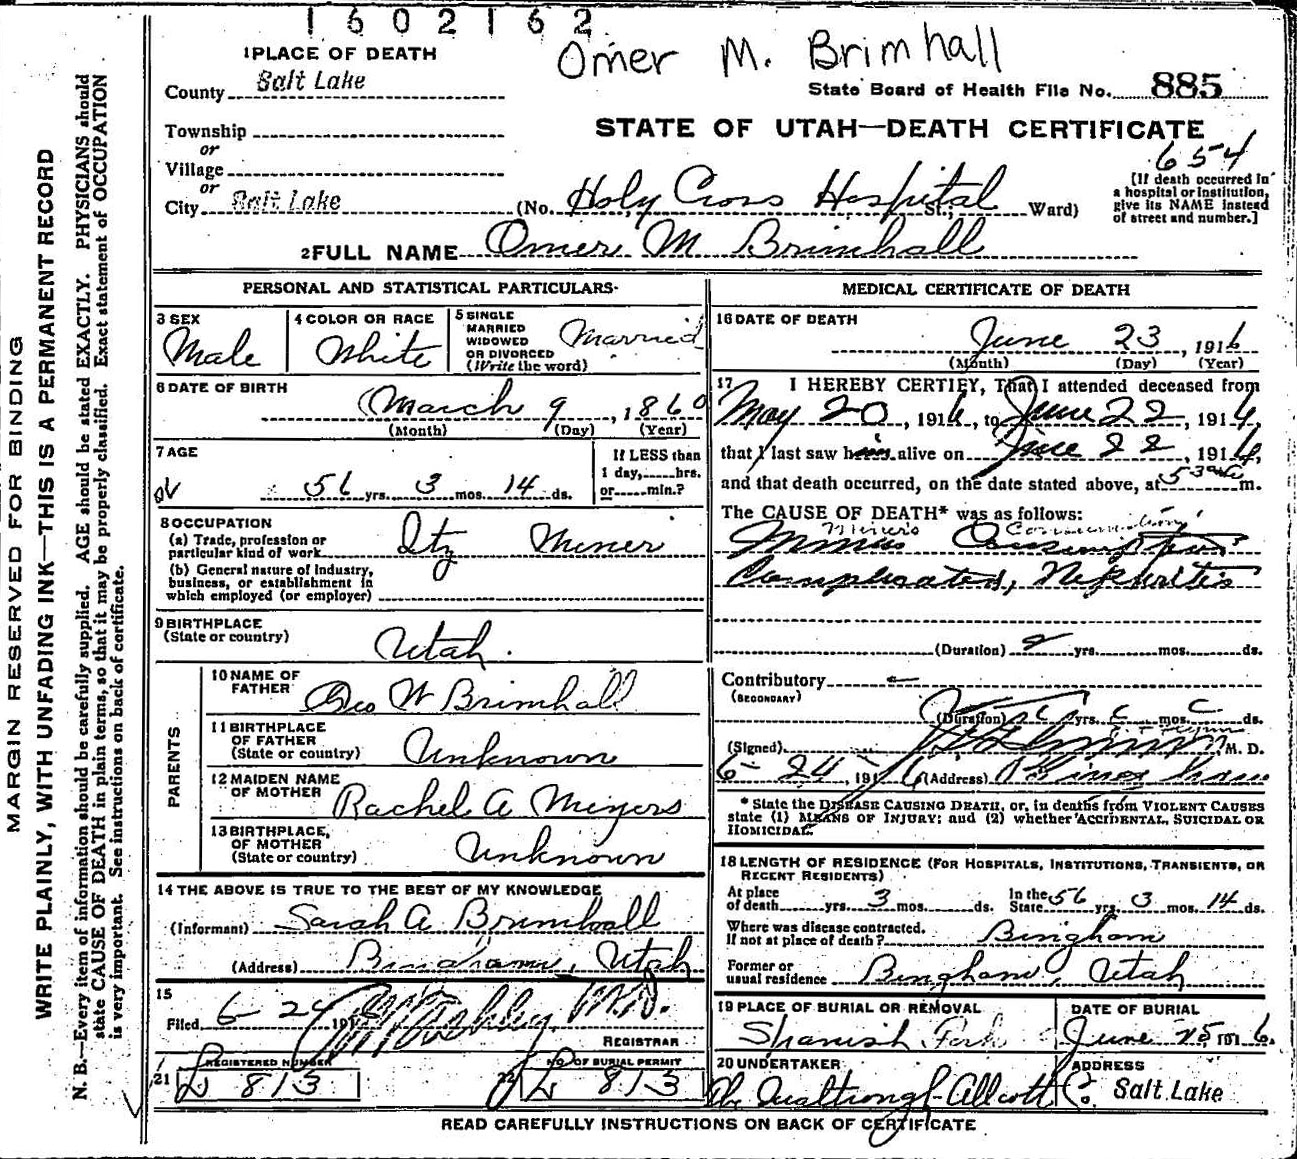 1602162
Omer M. Brimhall
1 PLACE OF DEATH
County Salt Lake
State Board of Health File No. 885
Township
or
STATE OF UTAH—DEATH CERTIFICATE
654
Village
or
City Salt Lake (No. Holy Cross Hospital St.; Ward)
(If death occurred in a hospital or institution, give its NAME instead of street and number.]
2 FULL NAME Omer M Brimhall
PERSONAL AND STATISTICAL PARTICULARS
3 SEX Male
4 COLOR OR RACE White
5 SINGLE MARRIED WIDOWED OR DIVORCED (Write the word) Married
6 DATE OF BIRTH
March 9, 1860
(Month) (Day) (Year)
7 AGE
56 yrs. 3 mos. 14 ds.
If LESS than 1 day, hrs. or min.?
8 OCCUPATION
(a) Trade, profession or particular kind of work Miner
(b) General nature of industry, business, or establishment in which employed (or employer)
9 BIRTHPLACE
(State or country) Utah.
PARENTS
10 NAME OF FATHER Geo W Brimhall
11 BIRTHPLACE OF FATHER (State or country) Unknown
12 MAIDEN NAME OF MOTHER Rachel A Meyers
13 BIRTHPLACE, OF MOTHER (State or country) Unknown
14 THE ABOVE IS TRUE TO THE BEST OF MY KNOWLEDGE
(Informant) Sarah A Brimhall
(Address) Bingham, Utah
15
Filed 6-24 191 M.D.
REGISTRAR
21 REGISTERED NUMBER 813
NO. OF BURIAL PERMIT 813
MEDICAL CERTIFICATE OF DEATH
16 DATE OF DEATH
June 23, 1916
(Month) (Day) (Year)
17 I HEREBY CERTIFY, That I attended deceased from
May 20, 1916, to June 22, 1916,
that I last saw him alive on June 22, 1916,
and that death occurred, on the date stated above, at 5 30 a m.
The CAUSE OF DEATH* was as follows:
Miner's Consumption
Miners Consumption
Complicated, Nephritis
(Duration) 2 yrs. mos. ds.
Contributory
(SECONDARY)
(Duration) yrs. mos. ds.
(Signed) M. D.
6-24-, 1916 (Address)
* State the DISEASE CAUSING DEATH, or, in deaths from VIOLENT CAUSES
state (1) MEANS OF INJURY; and (2) whether ACCIDENTAL, SUICIDAL OR
HOMICIDAL.
18 LENGTH OF RESIDENCE (FOR HOSPITALS, INSTITUTIONS, TRANSIENTS, OR
RECENT RESIDENTS)
At place of death yrs. 3 mos. ds. In the State 56 yrs. 3 mos. 14 ds.
Where was disease contracted, If not at place of death? Bingham
Former or usual residence Bingham, Utah
19 PLACE OF BURIAL OR REMOVAL Spanish Fork
DATE OF BURIAL June 25 1916.
20 UNDERTAKER
ADDRESS Salt Lake
READ CAREFULLY INSTRUCTIONS ON BACK OF CERTIFICATE
MARGIN RESERVED FOR BINDING
WRITE PLAINLY, WITH UNFADING INK—THIS IS A PERMANENT RECORD
N. B.—Every item of information should be carefully supplied. AGE should be stated EXACTLY. PHYSICIANS should
state CAUSE OF DEATH in plain terms, so that it may be properly classified. Exact statement of OCCUPATION
is very important. See instructions on back of certificate.